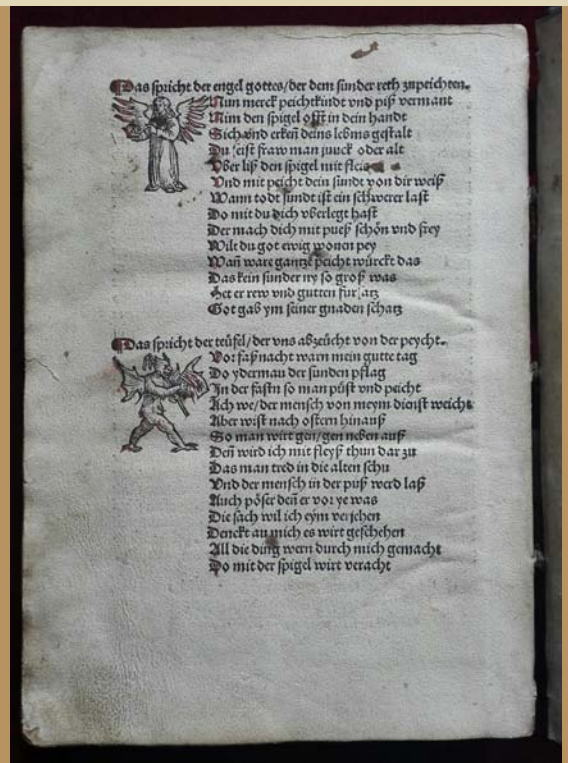 Das spricht der engel gottes/der dem sunder reth zupeichten.
Nun merck peichtkindt vnd piß vermant
Nim den spigel offt in dein handt
Sich vnd erken deins lebms gestalt
Du seist fraw man junck oder alt
Vber liß den spigel mit fleis
Vnd mit peicht dein sundt von dir weiß
Wann todt sundt ist ein schwerer last
Do mit du dich vberlegt hast
Der mach dich mit pueß schön vnd frey
Wilt du got ewig wonen pey
Wañ ware gantze peicht würckt das
Das kein sunder ny so groß was
Het er rew vnd gutten fursatz
Got gab ym seiner gnaden schatz
Das spricht der teüfel/der vns abzeücht von der peycht.
Vor faßnacht warn mein gutte tag
Do yderman der sunden pflag
In der fastn so man püst vnd peicht
Ach we/der mensch von meym dienst weicht
Aber wist nach ostern hinauß
So man wirt gen/gen neben auß
Deñ wird ich mit fleyß thun dar zu
Das man tred in die alten schu
Vnd der mensch in der puß werd laß
Auch pöser deñ er vor ye was
Die sach wil ich eym veriehen
Denckt an mich es wirt geschehen
All die ding wern durch mich gemacht
Do mit der spigel wirt veracht